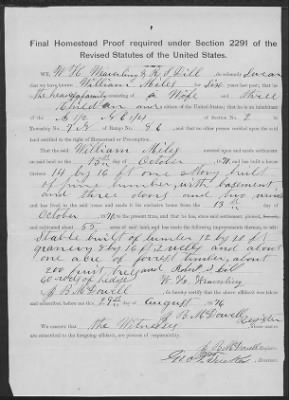 Final Homestead Proof required under Section 2291 of the
Revised Statutes of the United States.
WE, W. H. & R. S. Gill do solemnly Swear
that we have known William Miles for Six years last past; that he
is the head of a family consisting of a Wife and three
Children and citizen of the United States; that he is an inhabitant
of the S 1/2 N E 1/4 of Section No. 2 in
Township No. 7 N of Range No. 6 E and that no other person resided upon the said land
entitled to the right of Homestead or Pre-emption.
That the said William Miles entered upon and made settlement
on said land on the 15th day of October, 1871, and has built a house
thereon 14 by 16 ft one story built
of pine lumber, with basement
and three doors and two windows
and has lived in the said house and made it his exclusive home from the 13th day of
October 1871, to the present time, and that he has, since said settlement, plowed,
and cultivated about 65 acres of said land, and has made the following improvements thereon, to wit:
Stable built of lumber 12 by 14 ft
granery 8 by 16 ft 2 wells and about
one acre of forrest timber, about
200 fruit trees and Robt. S. Gill
60 rods of hedge W. H.
I, J B McDowell do hereby certify that the above affidavit was taken and
subscribed before me this 29th day of August 1876
J B McDowell
Register
WE CERTIFY that the Witnesses whose names are
subscribed to the foregoing affidavit, are persons of respectability.
J B McDowell, Register.
Receiver.